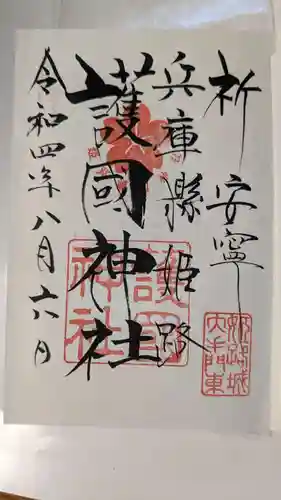 祈安寧
兵庫縣姫路
護國神社
令和四年八月六日
護國
神社
姫路城
大手門東